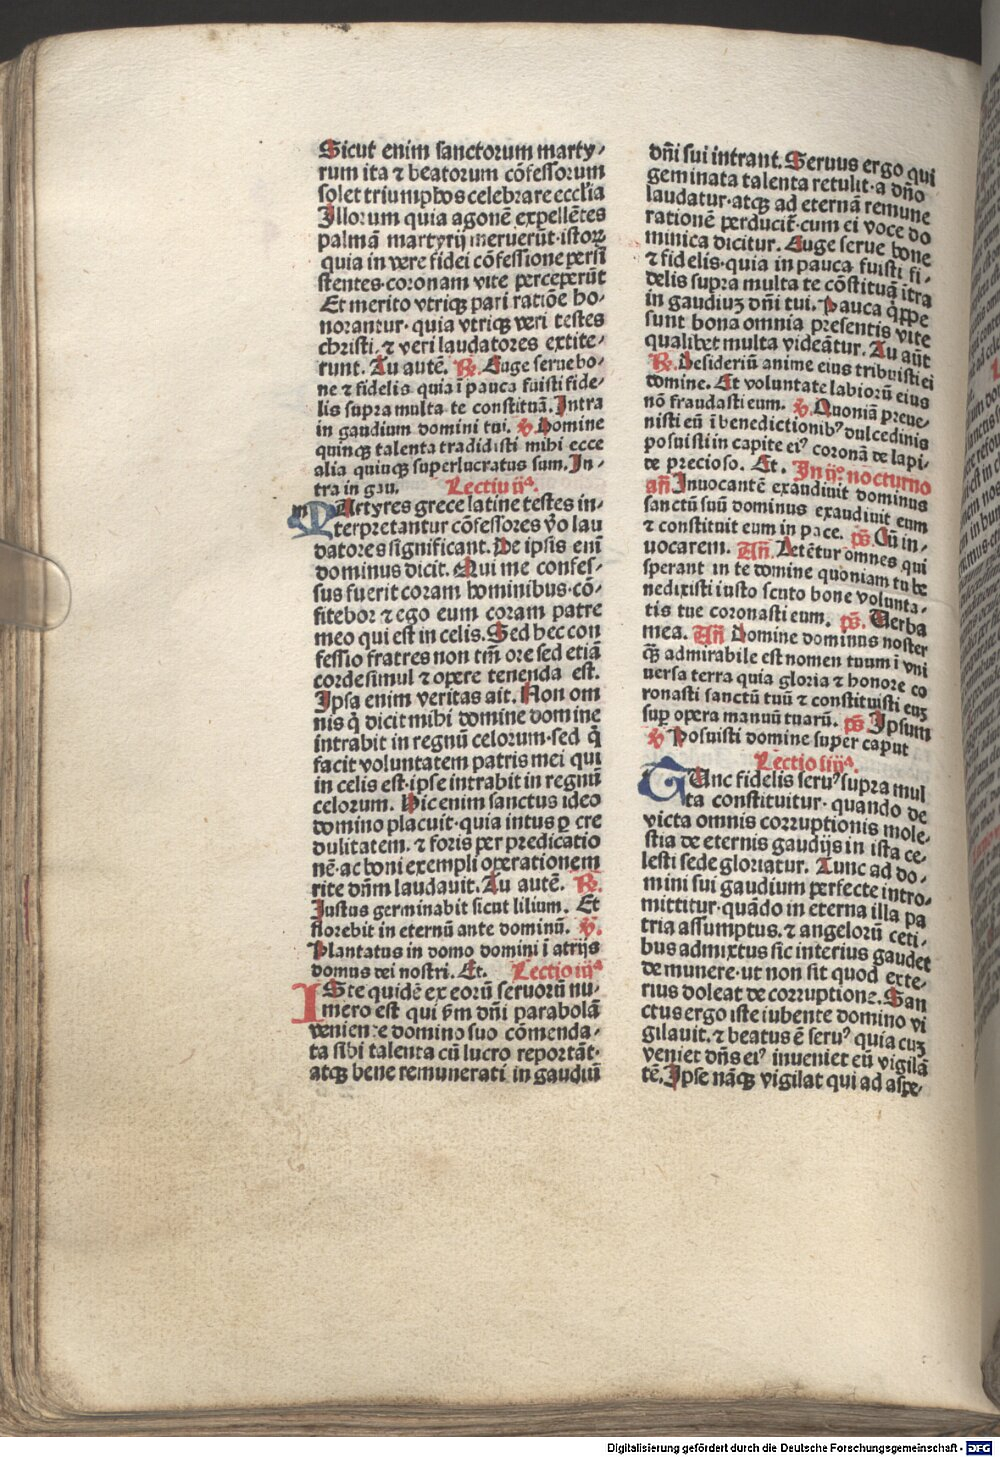 Sicut enim sanctorum marty⸗
rum ita ⁊ beatorum cōfessorum
solet triumphos celebrare eccl'ia
Illorum quia agonē expellētes
palmā martyrij meruerūt·istoꝝ
quia in vere fidei cōfessione persi
stentes·coronam vite perceperūt
Et merito vtriqꝫ pari ratiōe ho⸗
norantur· quia vtriqꝫ veri testes
christi·⁊ veri laudatores extite⸗
runt. Tu autē. ℟. Euge serue bo⸗
ne ⁊ fidelis quia ī pauca fuisti fide⸗
lis supra multa te constituā. Intra
in gaudium domini tui. ℣. Domine
quinqꝫ talenta tradidisti mihi ecce
alia quinqꝫ superlucratus sum. In⸗
tra in gau. Lectiu ijª.
MArtyres grece latine testes in⸗
terpretantur cōfessores v̊o lau
datores significant. De ipsis enī
dominus dicit. Qui me confes⸗
sus fuerit coram hominibus·cō⸗
fitebor ⁊ ego eum coram patre
meo qui est in celis. Sed hec con
fessio fratres non tm̄ ore sed etiā
corde simul ⁊ opere tenenda est.
Ipsa enim veritas ait. Non om
nis q̇ dicit mihi domine domine
intrabit in regnū celorum·sed q̇
facit voluntatem patris mei qui
in celis est·ipse intrabit in regnū
celorum. Hic enim sanctus ideo
domino placuit·quia intus ꝑ cre
dulitatem·⁊ foris per predicatio
nē·ac boni exempli operationem
rite dn̄m laudauit. Tu autē. ℟.
Iustus germinabit sicut lilium. Et
florebit in eternū ante dominū. ℣.
Plantatus in domo domini ī atrijs
domus dei nostri. Et. Lectio iijª
ISte quidē ex eorū seruorū nu⸗
mero est qui ẜm dn̄i parabolā
veniente domino suo cōmenda⸗
ta sibi talenta cū lucro reportāt·
atqꝫ bene remunerati in gaudiū
dn̄i sui intrant. Seruus ergo qui
geminata talenta retulit·a dn̄o
laudatur·atqꝫ ad eternā remune
rationē perducit᷑·cum ei voce do
minica dicitur. Euge serue bone
⁊ fidelis·quia in pauca fuisti fi⸗
delis supra multa te cōstituā ītra
in gaudiuꝫ dn̄i tui. Pauca q̇ppe
sunt bona omnia presentis vite
qualibet multa videātur. Tu aūt
℟. Desideriū anime eius tribuisti ei
domine. Et voluntate labiorū eius
nō fraudasti eum. ℣. Quoniā preue⸗
nisti eū ī benedictionibꝰ dulcedinis
posuisti in capite eiꝰ coronā de lapi⸗
de precioso. Et. In ijº. nocturno
an̄ Inuocantē exaudiuit dominus
sanctū suū dominus exaudiuit eum
⁊ constituit eum in pace. ps̄. Cū in⸗
uocarem. An̄. Letētur omnes qui
sperant in te domine quoniam tu be
nedixisti iusto scuto bone volunta⸗
tis tue coronasti eum. ps̄. Verba
mea. An̄ Domine dominus noster
qꝫ̄ admirabile est nomen tuum ī vni
uersa terra quia gloria ⁊ honore co
ronasti sanctū tuū ⁊ constituisti euꝫ
sup̱ opera manuū tuarū. ps̄ Ipsum
℣ Posuisti domine super caput
Lectio iiijª.
TUnc fidelis seruꝰ supra mul
ta constituitur· quando de
victa omnis corruptionis mole⸗
stia de eternis gaudijs in ista ce⸗
lesti sede gloriatur. Tunc ad do⸗
mini sui gaudium perfecte intro⸗
mittitur·quādo in eterna illa pa
tria assumptus·⁊ angelorū ceti⸗
bus admixtus sic interius gaudet
de munere·ut non sit quod exte⸗
rius doleat de corruptione. San
ctus ergo iste iubente domino vi
gilauit·⁊ beatus ē seruꝰ quia cuꝫ
veniet dn̄s eiꝰ inueniet eū vigilā
tē. Ipse nāqꝫ vigilat qui ad aspe⸗
Digitalisierung gefördert durch die Deutsche Forschungsgemeinschaft - DFG